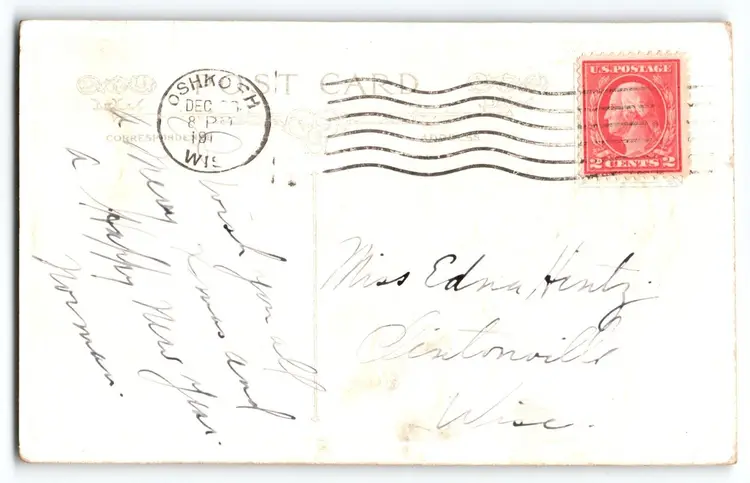 POST CARD
CORRESPONDENCE
ADDRESS
OSHKOSH
DEC
8 PM
191
WIS
U.S. POSTAGE
2 CENTS 2
Wish you all
a Merry Xmas and
a Happy New Year.
Norman.
Miss Edna Hintz.
Clintonville
Wisc.